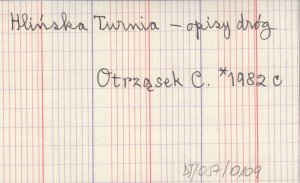 Hlińska Turnia – opisy dróg
Otrząsek C. *1982 c
DT/057/0109